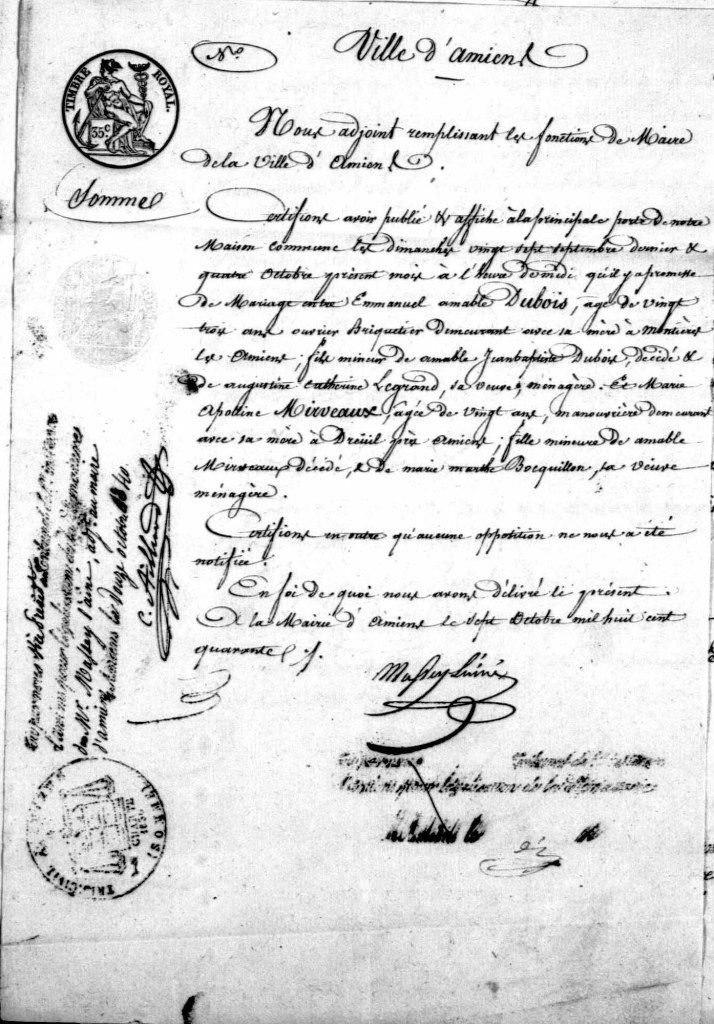 TIMBRE ROYAL.
35c
Somme
No
Ville d'amiens
Nous adjoint remplissant les fonctions de Maire
de la Ville d'Amiens.
Certifions avoir publié & affiché à la principale porte de notre
Maison commune les dimanches vingt sept septembre dernier &
quatre Octobre présent mois à l'heure de midi qu'il y a promesse
de Mariage entre Emmanuel amable Dubois, agé de vingt
trois ans ouvrier Briquetier demeurant avec sa mère à Montières
les Amiens, fils mineur de amable Jean baptiste Dubois, décédé &
de augustine Catherine Legrand, sa veuve, ménagère. Et Marie
Apolline Mirveaux, agée de vingt ans, manouvrière demeurant
avec sa mère à Dreüil près Amiens, fille mineure de amable
Mirveaux décédé, & de marie marthe Bocquillon, sa veuve
ménagère.
Certifions en outre qu'aucune opposition ne nous a été
notifiée.
En foi de quoi nous avons délivré le présent
A la Mairie d'Amiens le Sept Octobre mil huit cent
quarante
Massey l'ainé
Par nous
pour légalisation de la
de Mr. Massey l'ainé, adjt. au maire
d'amiens
Amiens le douze octobre 1840
pour légalisation de la
le
TRIB. CIVIL